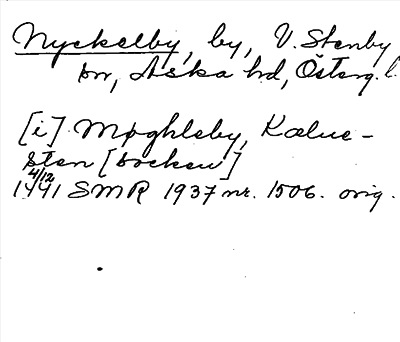 Nyckelby, by, V. Stenby
sn, Aska hd, Österg. l.
[i] Møghleby, Kælue-
sten [socken]
4/12
1441 SMR 1937 nr. 1506. orig.